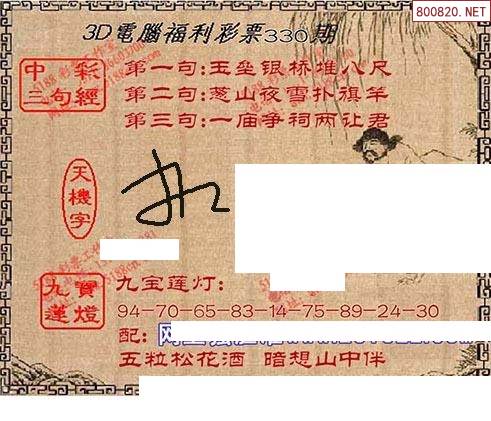 800820.NET
3D電腦福利彩票330期
中彩
三句經
第一句:玉垒银桥堆八尺
第二句:葱山夜雪扑旗竿
第三句:一庙争祠两让君
天機字
九寶
蓮燈
九宝莲灯:
94-70-65-83-14-75-89-24-30
配:
五粒松花酒 暗想山中伴